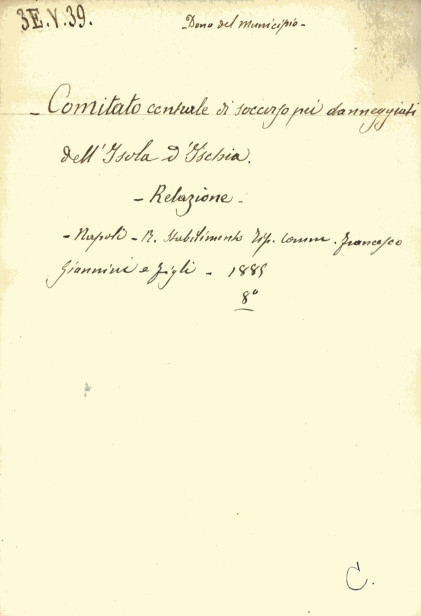 3E.V.39.
Dono del Municipio -
- Comitato centrale di soccorso pei danneggiati
dell'Isola d'Ischia.
- Relazione -
- Napoli - R. Stabilimento Tip. Comm. Francesco
Giannini e Figli - 1885
8°
C.